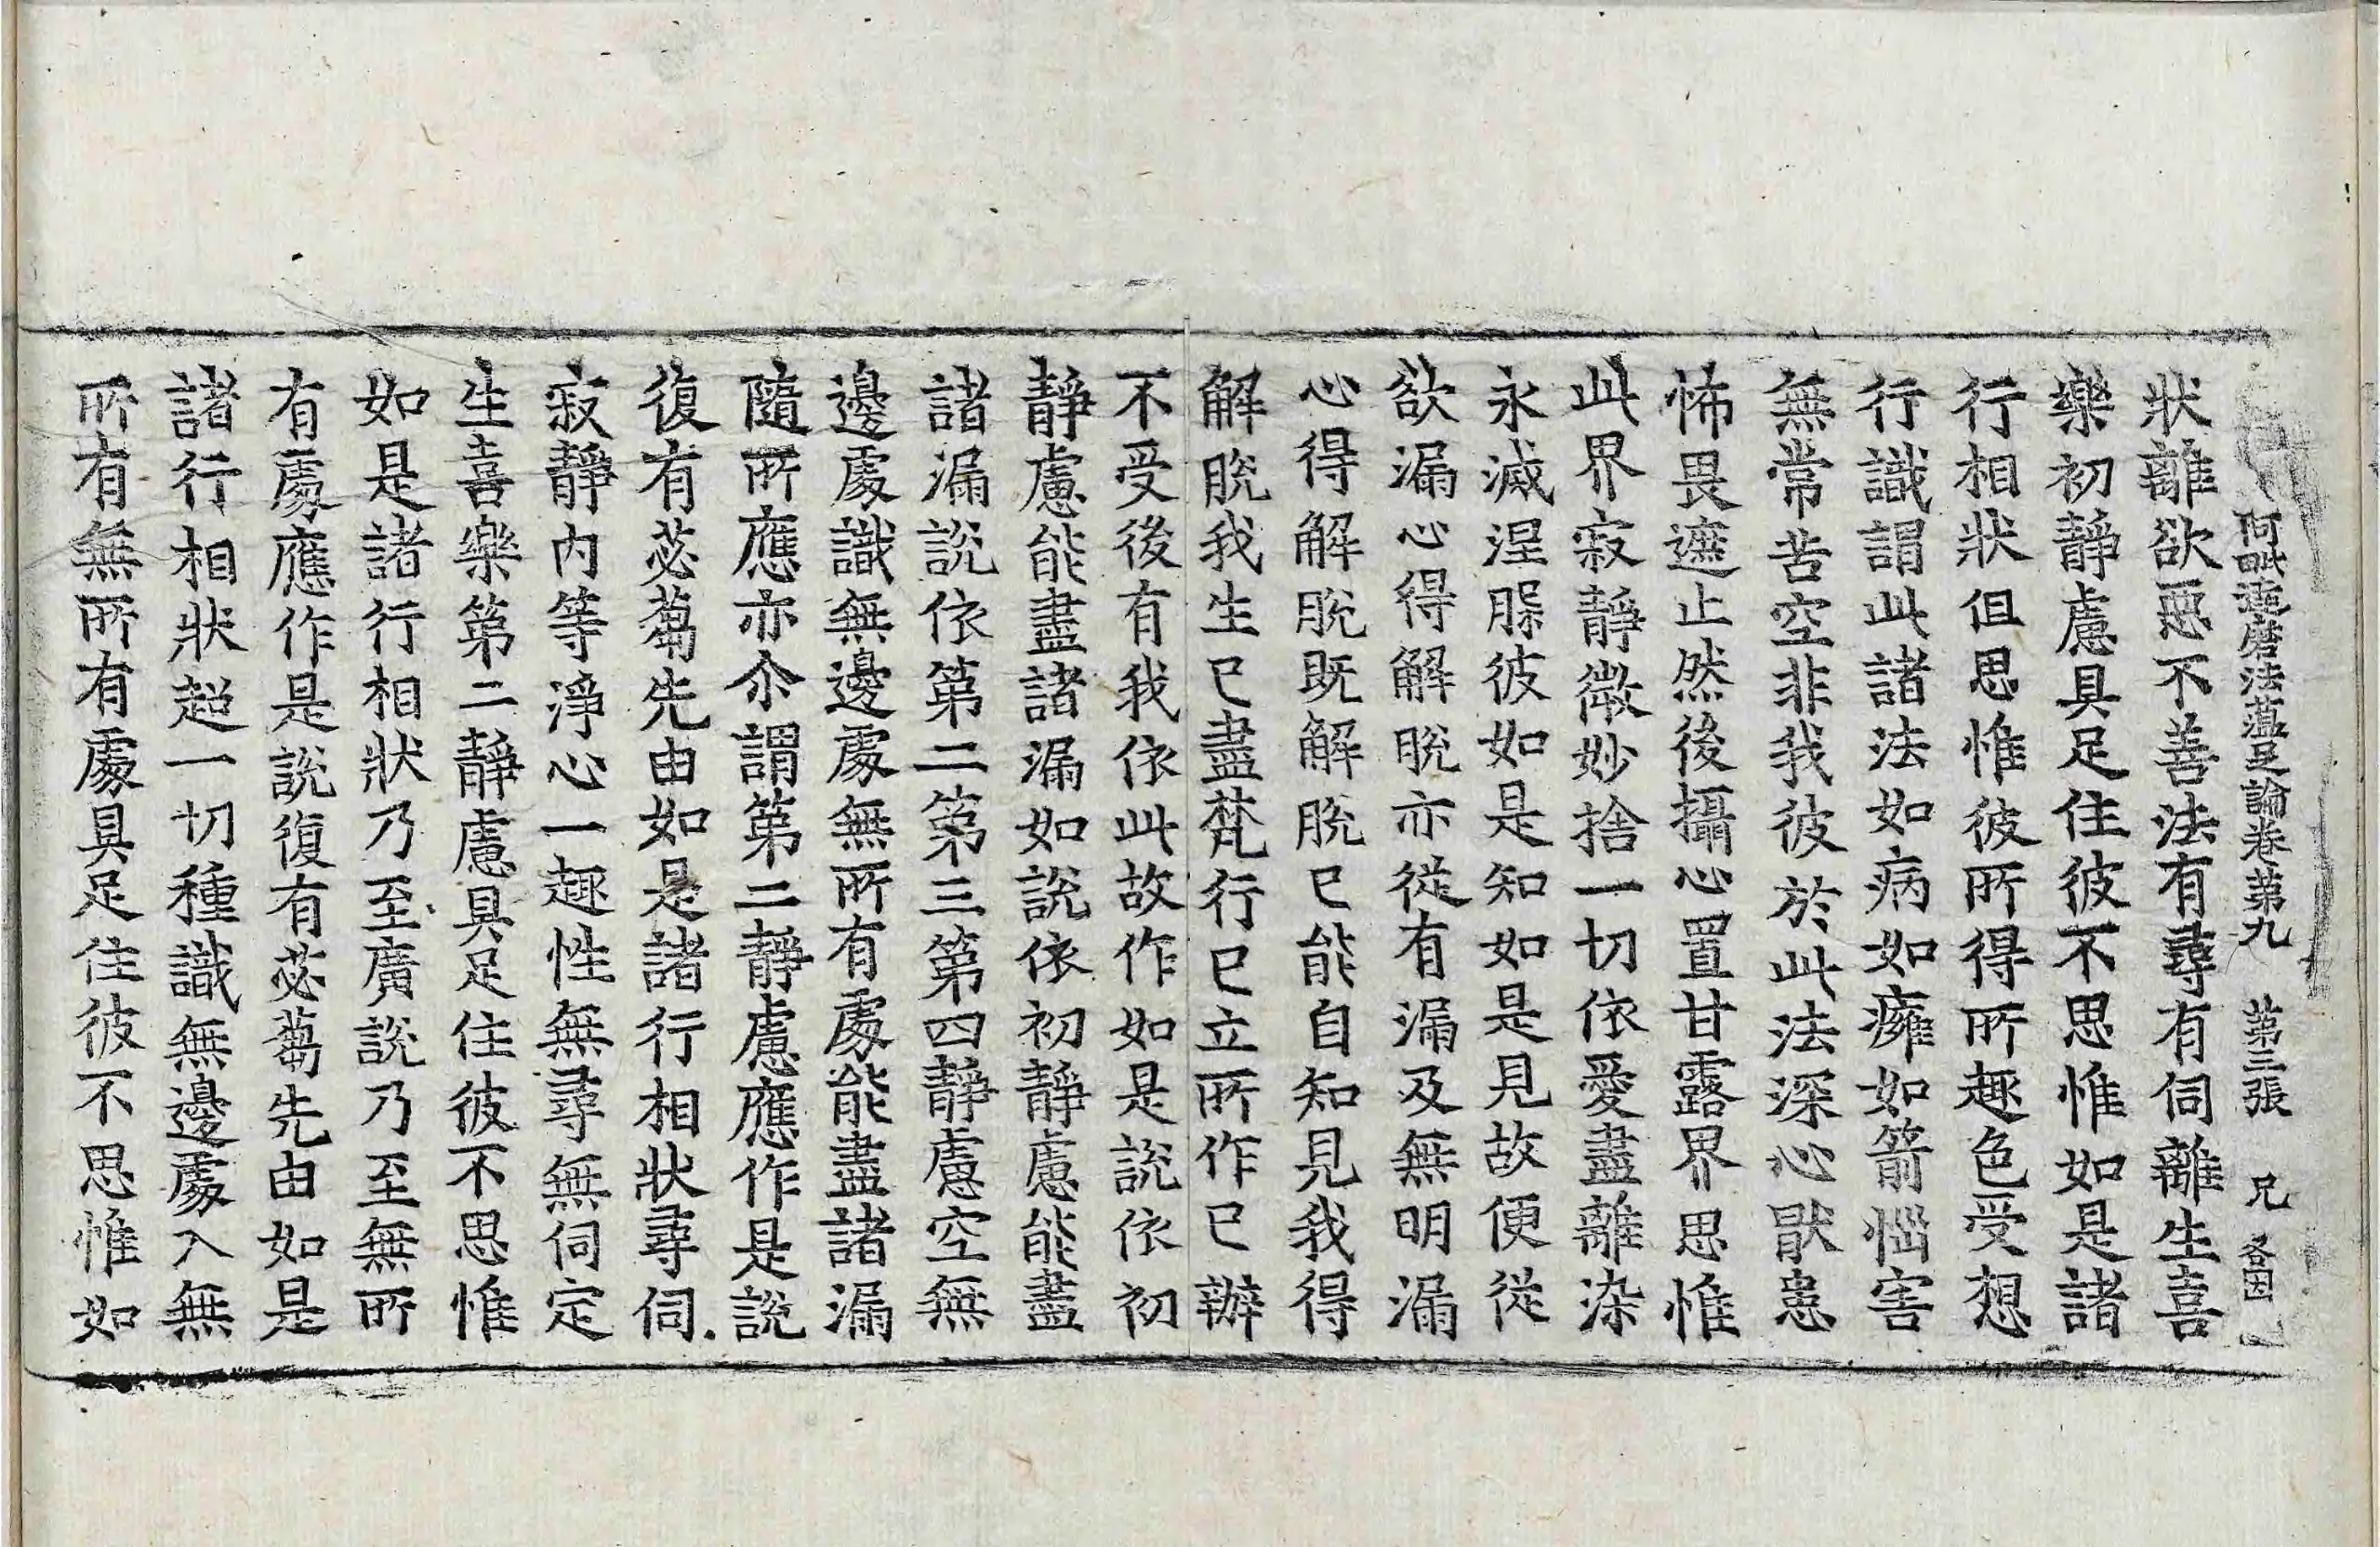 阿毗達磨法蘊足論卷第九 第三張 兄
狀離欲惡不善法有尋有伺離生喜
樂初靜慮具足住彼不思惟如是諸
行相狀但思惟彼所得所趣色受想
行識謂此諸法如病如癰如箭惱害
無常苦空非我彼於此法深心猒患
怖畏遮止然後攝心置甘露界思惟
此界寂靜微妙捨一切依愛盡離染
永滅涅槃彼如是知如是見故便從
欲漏心得解脫亦從有漏及無明漏
心得解脫既解脫已能自知見我得
解脫我生已盡梵行已立所作已辦
不受後有我依此故作如是說依初
靜慮能盡諸漏如說依初靜慮能盡
諸漏說依第二第三第四靜慮空無
邊處識無邊處無所有處能盡諸漏
隨所應亦尒謂第二靜慮應作是說
復有苾蒭先由如是諸行相狀尋伺
寂靜內等淨心一趣性無尋無伺定
生喜樂第二靜慮具足住彼不思惟
如是諸行相狀乃至廣說乃至無所
有處應作是說復有苾蒭先由如是
諸行相狀超一切種識無邊處入無
所有無所有處具足住彼不思惟如